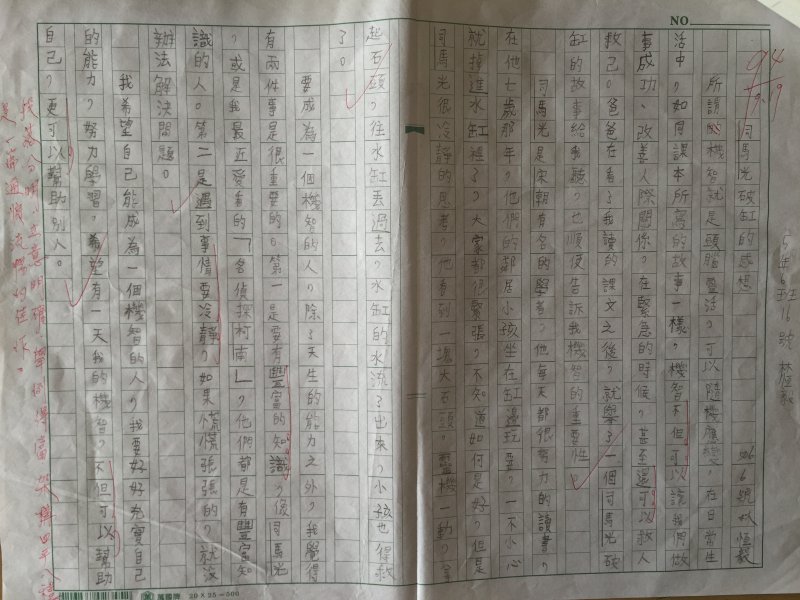 NO.
94
司馬光破缸的感想
所謂機智就是頭腦靈活，可以隨機應變，在日常生
活中，如同課本所寫的故事一樣，機智不但可以讓我們做
事成功、改善人際關係，在緊急的時候，甚至還可以救人
救己。爸爸在看了我讀的課文之後，就學了一個司馬光破
缸的故事給我聽，也順便告訴我機智的重要性。
司馬光是宋朝有名的學者，他每天都很努力的讀書，
在他七歲那年，他們的鄰居小孩坐在缸邊玩耍，一不小心
就掉進水缸裡了，大家都很緊張，不知道如何是好，但是
司馬光很冷靜的思考，他看到一塊大石頭，靈機一動，拿
起石頭，往水缸丟過去，水缸的水流了出來，小孩也得救
了。
要成為一個機智的人，除了天生的能力之外，我覺得
有兩件事是很重要的。第一是要有豐富的知識，像司馬光
，或是我最近愛看的「名偵探柯南」，他們都是有豐富知
識的人。第二是遇到事情要冷靜，如果慌慌張張的，就沒
辦法解決問題。
我希望自己能成為一個機智的人，我要好好充實自己
的能力，努力學習，希望有一天我的機智，不但可以幫助
自己，更可以幫助別人。
20 X 25 = 500